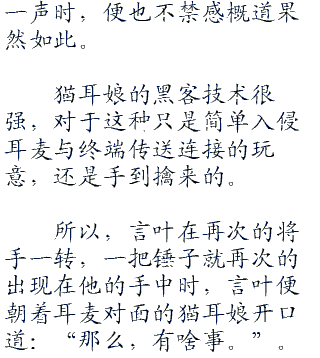 一声时，便也不禁感概道果
然如此。
猫耳娘的黑客技术很
强，对于这种只是简单入侵
耳麦与终端传送连接的玩
意，还是手到擒来的。
所以，言叶在再次的将
手一转，一把锤子就再次的
出现在他的手中时，言叶便
朝着耳麦对面的猫耳娘开口
道：“那么，有啥事。”。